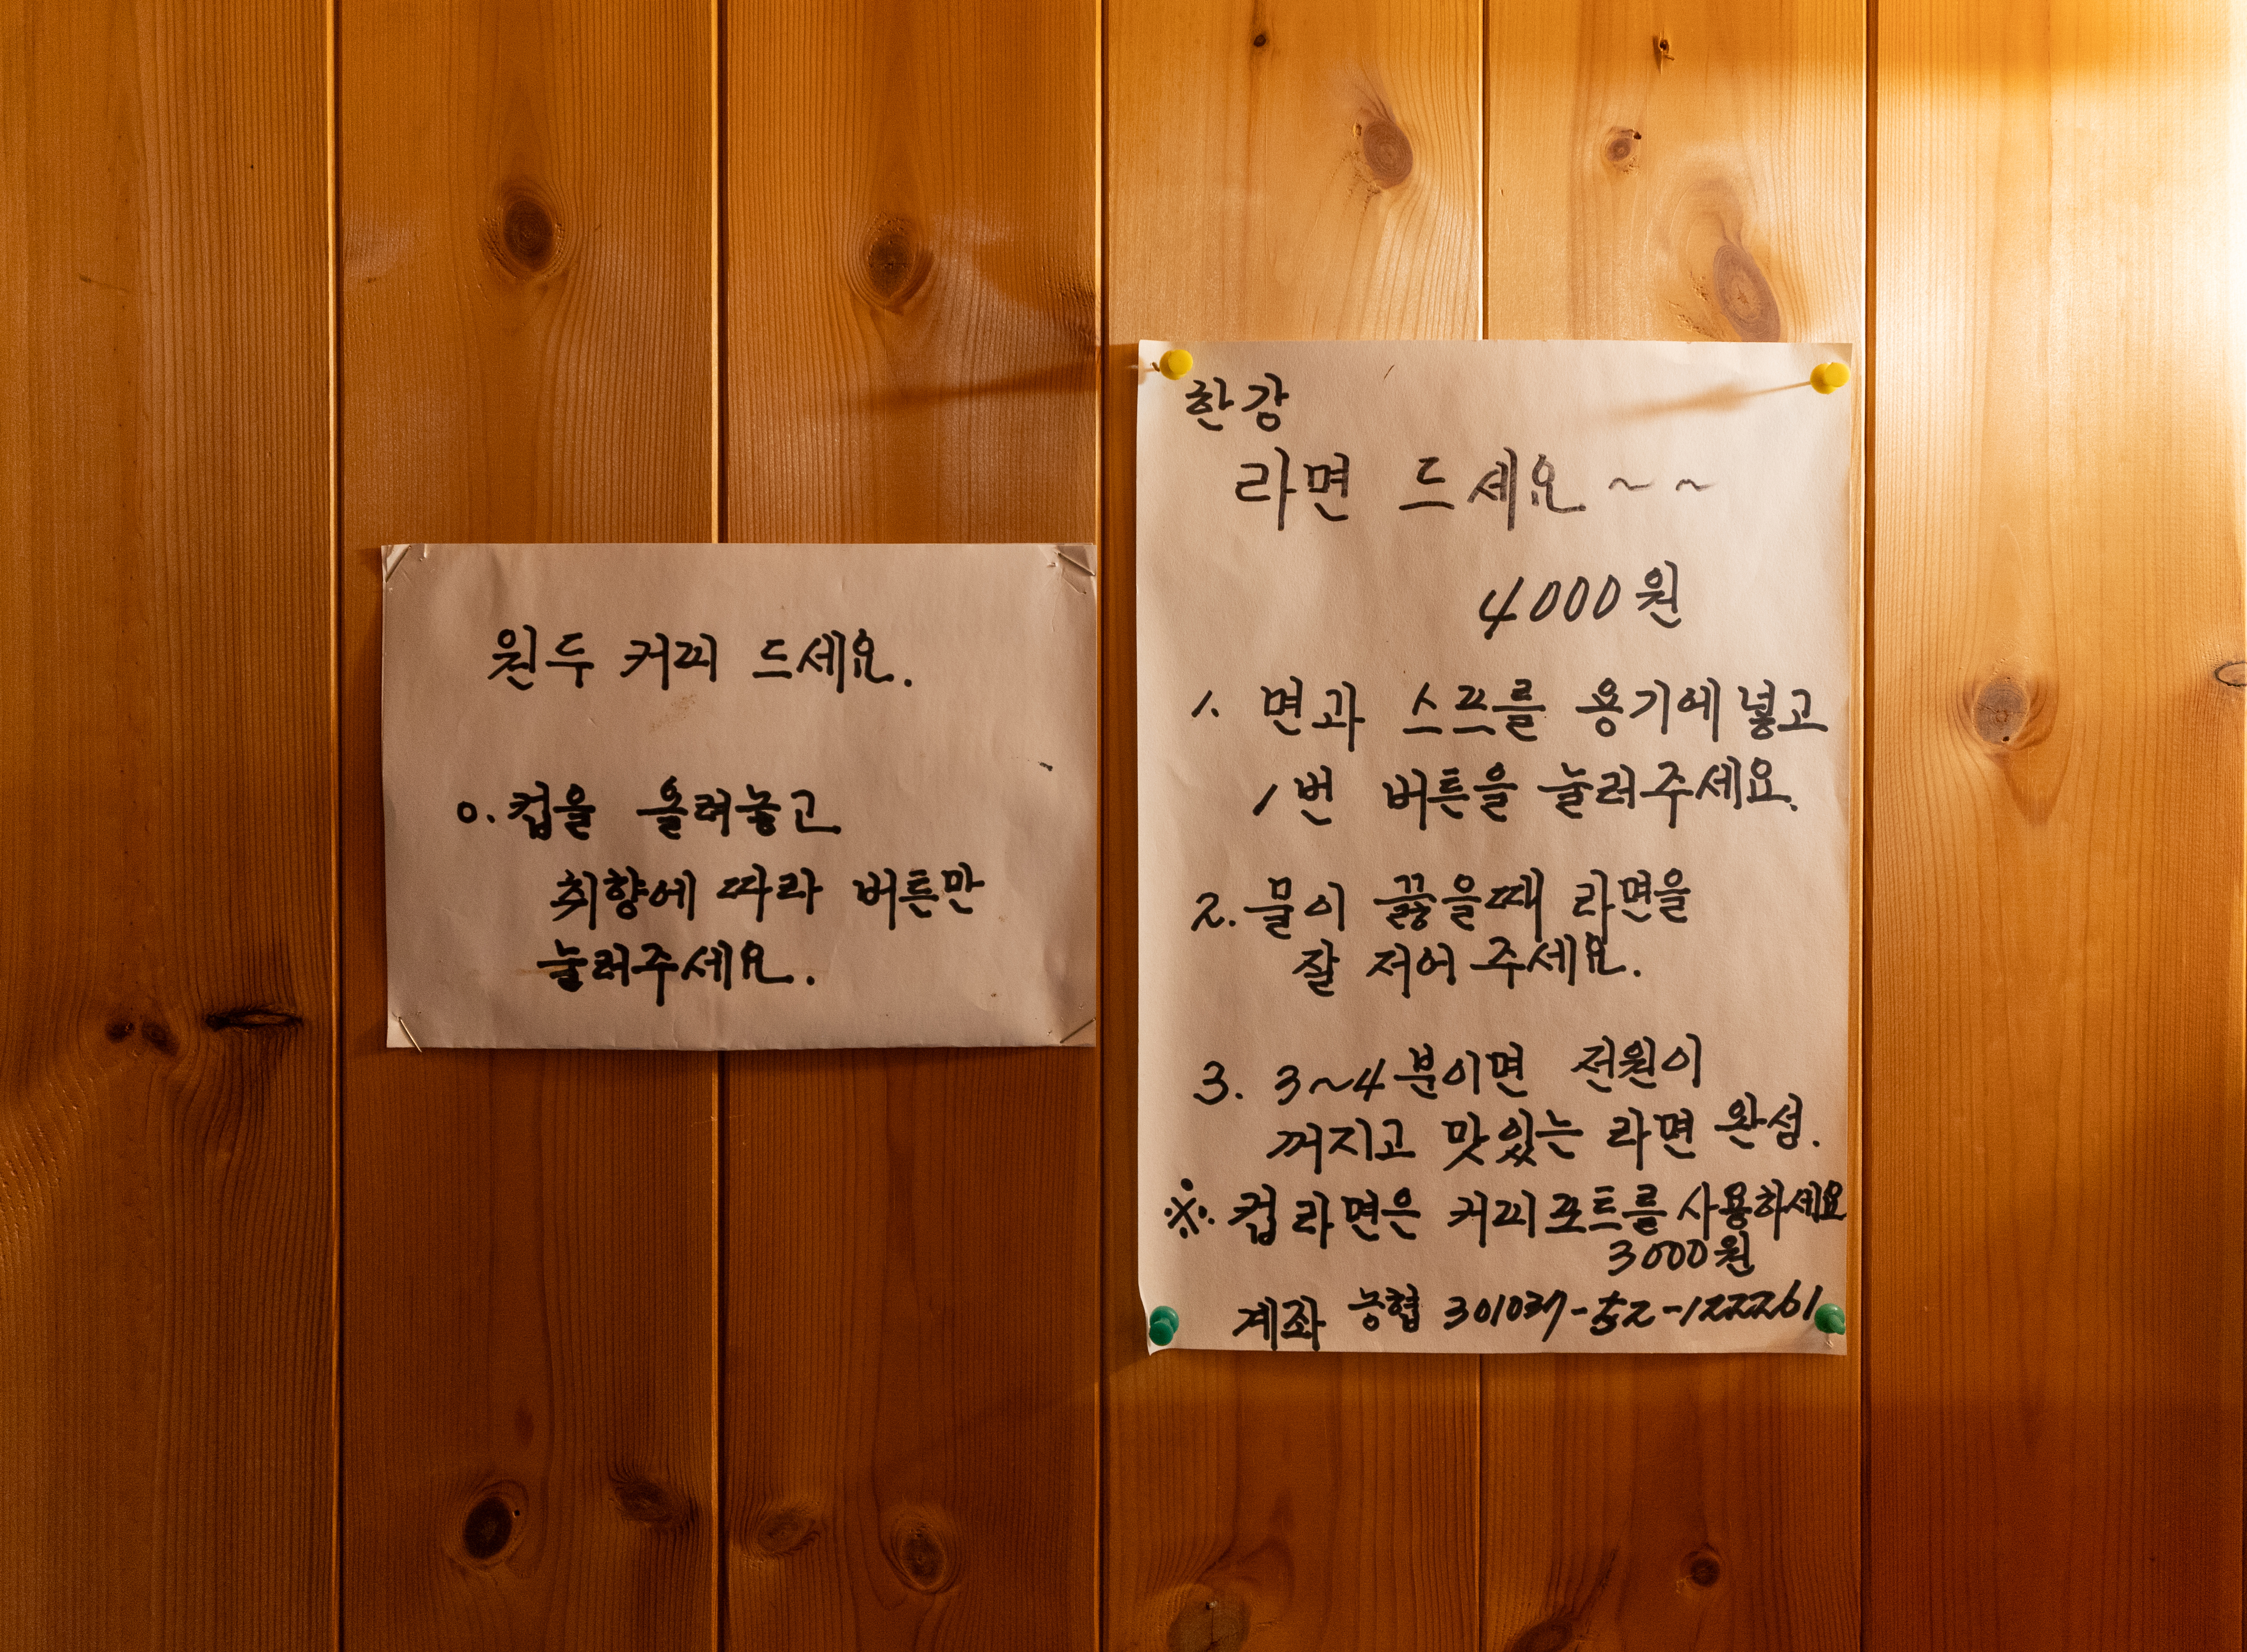 원두 커피 드세요.
o. 컵을 올려놓고
취향에 따라 버튼만
눌러주세요.
한강
라면 드세요 ~ ~
4000원
1. 면과 스프를 용기에 넣고
1번 버튼을 눌러주세요.
2. 물이 끓을때 라면을
잘 저어 주세요.
3. 3~4분이면 전원이
꺼지고 맛있는 라면 완성.
※. 컵라면은 커피포트를 사용하세요
3000원
계좌 농협 301037-52-122261